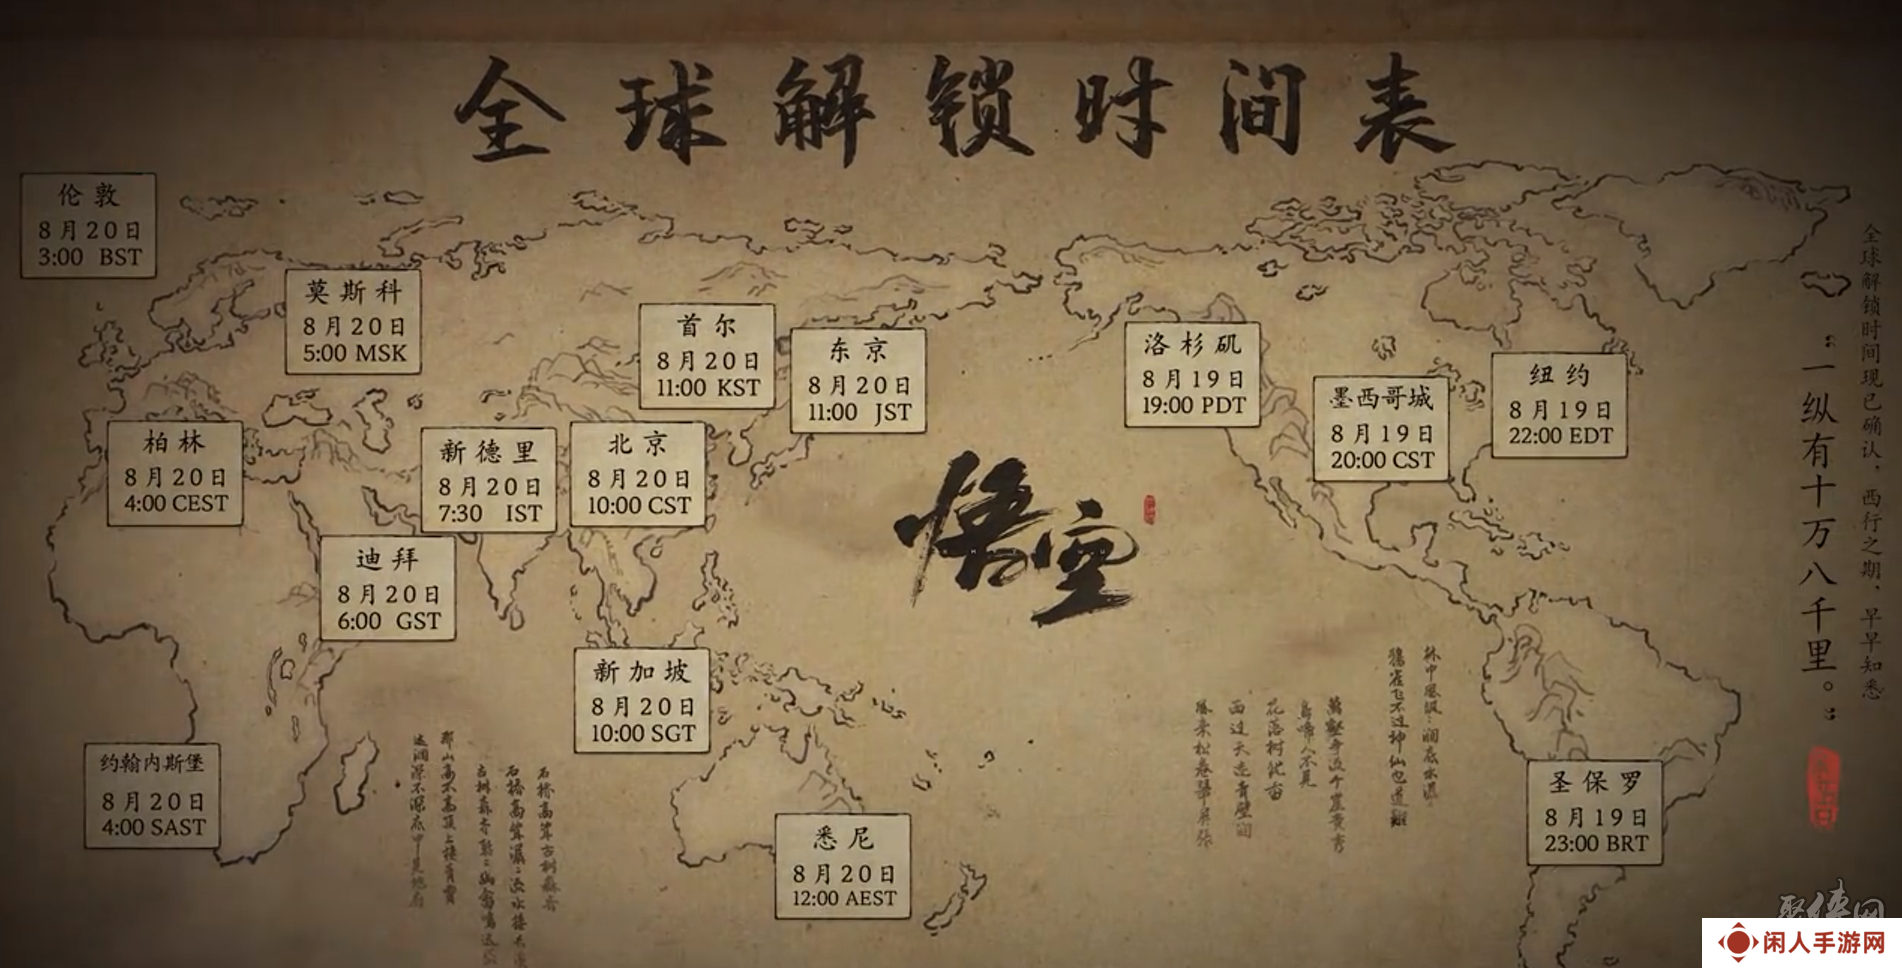 全球解锁时间表
伦敦
8月20日
3:00 BST
莫斯科
8月20日
5:00 MSK
首尔
8月20日
11:00 KST
东京
8月20日
11:00 JST
洛杉矶
8月19日
19:00 PDT
墨西哥城
8月19日
20:00 CST
纽约
8月19日
22:00 EDT
柏林
8月20日
4:00 CEST
新德里
8月20日
7:30 IST
北京
8月20日
10:00 CST
迪拜
8月20日
6:00 GST
悟空
新加坡
8月20日
10:00 SGT
约翰内斯堡
8月20日
4:00 SAST
悉尼
8月20日
12:00 AEST
圣保罗
8月19日
23:00 BRT
全球解锁时间现已确认，西行之期，早早知悉
：一纵有十万八千里。：
聚侠网
闲人手游网